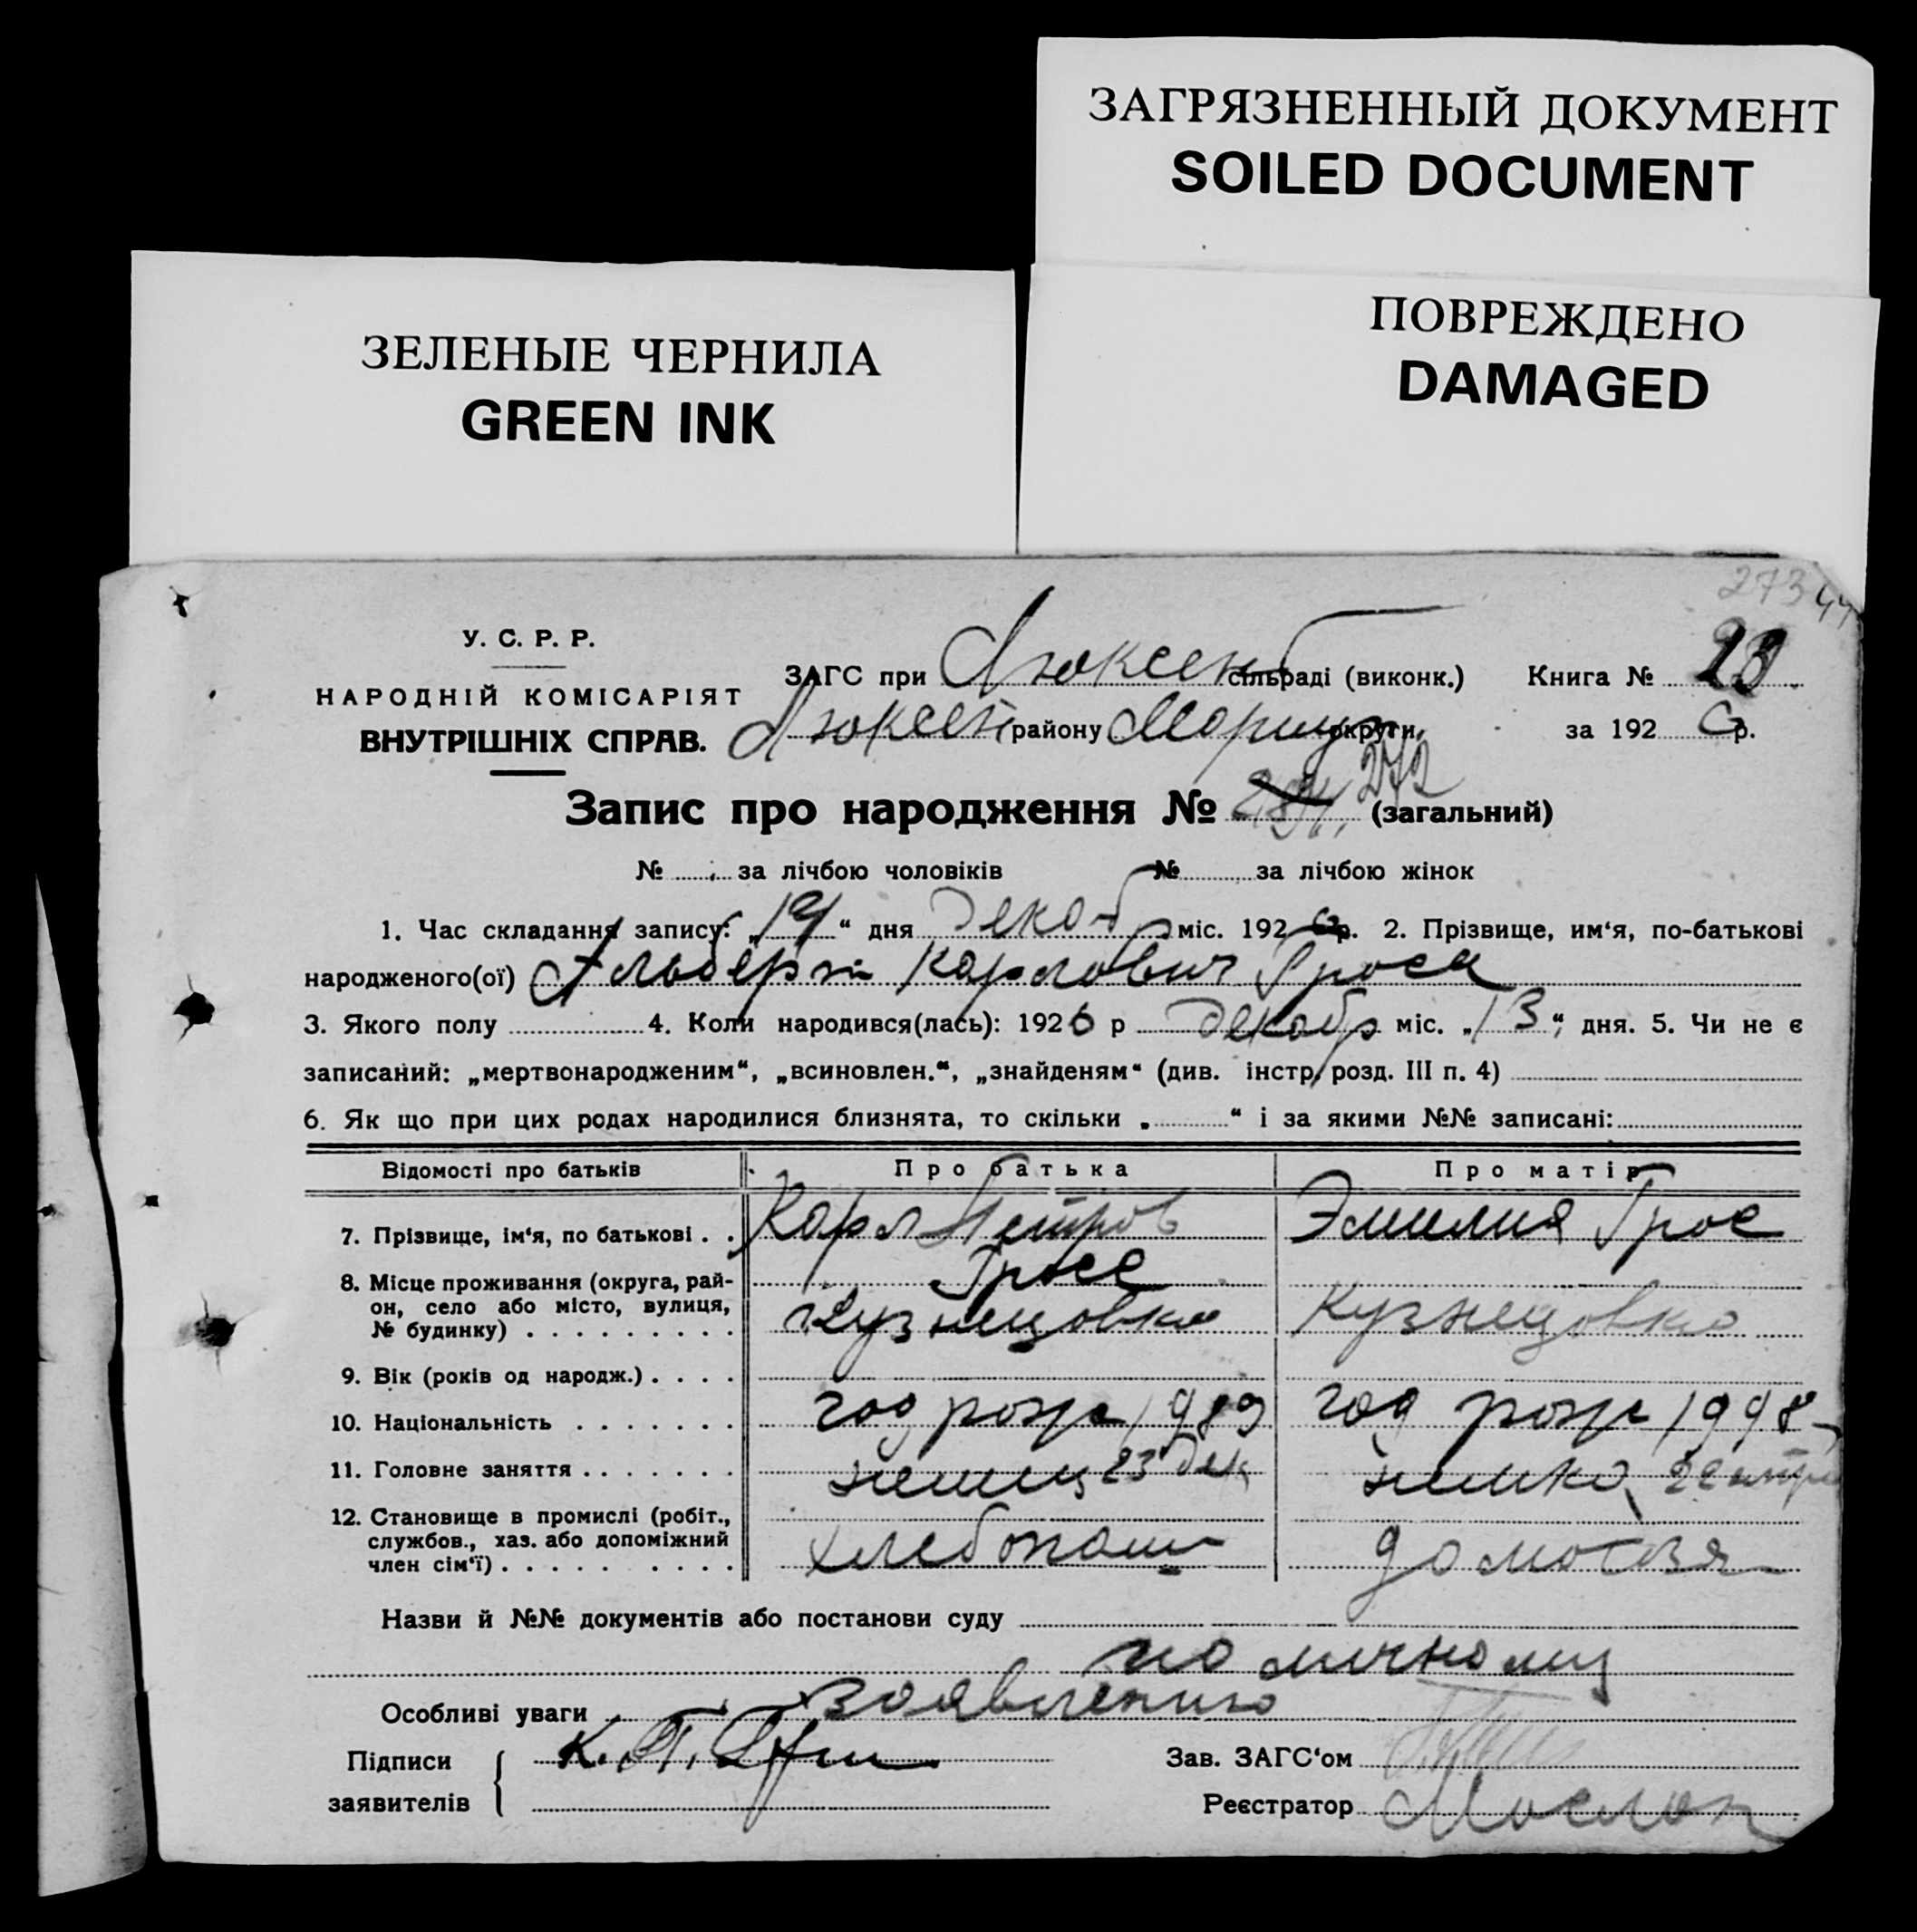 ЗАГРЯЗНЕННЫЙ ДОКУМЕНТ
SOILED DOCUMENT
ЗЕЛЕНЫЕ ЧЕРНИЛА
GREEN INK
ПОВРЕЖДЕНО
DAMAGED
273
У. С. Р. Р.
НАРОДНІЙ КОМІСАРІЯТ
ВНУТРІШНІХ СПРАВ.
ЗАГС при Люксенб сільраді (виконк.) Книга №
Люксен району Мариуп округи, за 192 6 р.
Запис про народження № 272 (загальний)
№ за лічбою чоловіків № за лічбою жінок
1. Час складання запису: „19“ дня Декаб міс. 192 6 р. 2. Прізвище, им‘я, по-батькові
народженого(ої) Альберт Карлович Гросс
3. Якого полу 4. Коли народився(лась): 1926 р Декабр міс. „13“, дня. 5. Чи не є
записаний: „мертвонародженим“, „всиновлен.“, „знайденям“ (див. інстр. розд. III п. 4)
6. Як що при цих родах народилися близнята, то скільки „ “ і за якими №№ записані:
Відомості про батьків Про батька Про матір
7. Прізвище, ім‘я, по батькові . . Карл Петров Эмилия Грос
Гросс
8. Місце проживання (округа, рай-
он, село або місто, вулиця,
№ будинку) . . . . . . . . . Кузнецовка Кузнецовка
9. Вік (років од народж.) . . . .
10. Національність . . . . . . . год рожд 1989 год рожд 1998
11. Головне заняття . . . . . . . немец 23 Дек немка
12. Становище в промислі (робіт.,
службов., хаз. або допоміжний
член сім‘ї) . . . . . . . . . хлебопаш домохозя
Назви й №№ документів або постанови суду
по личному
Особливі уваги заявлению
Підписи К. П.
заявителів
Зав. ЗАГС‘ом
Реєстратор